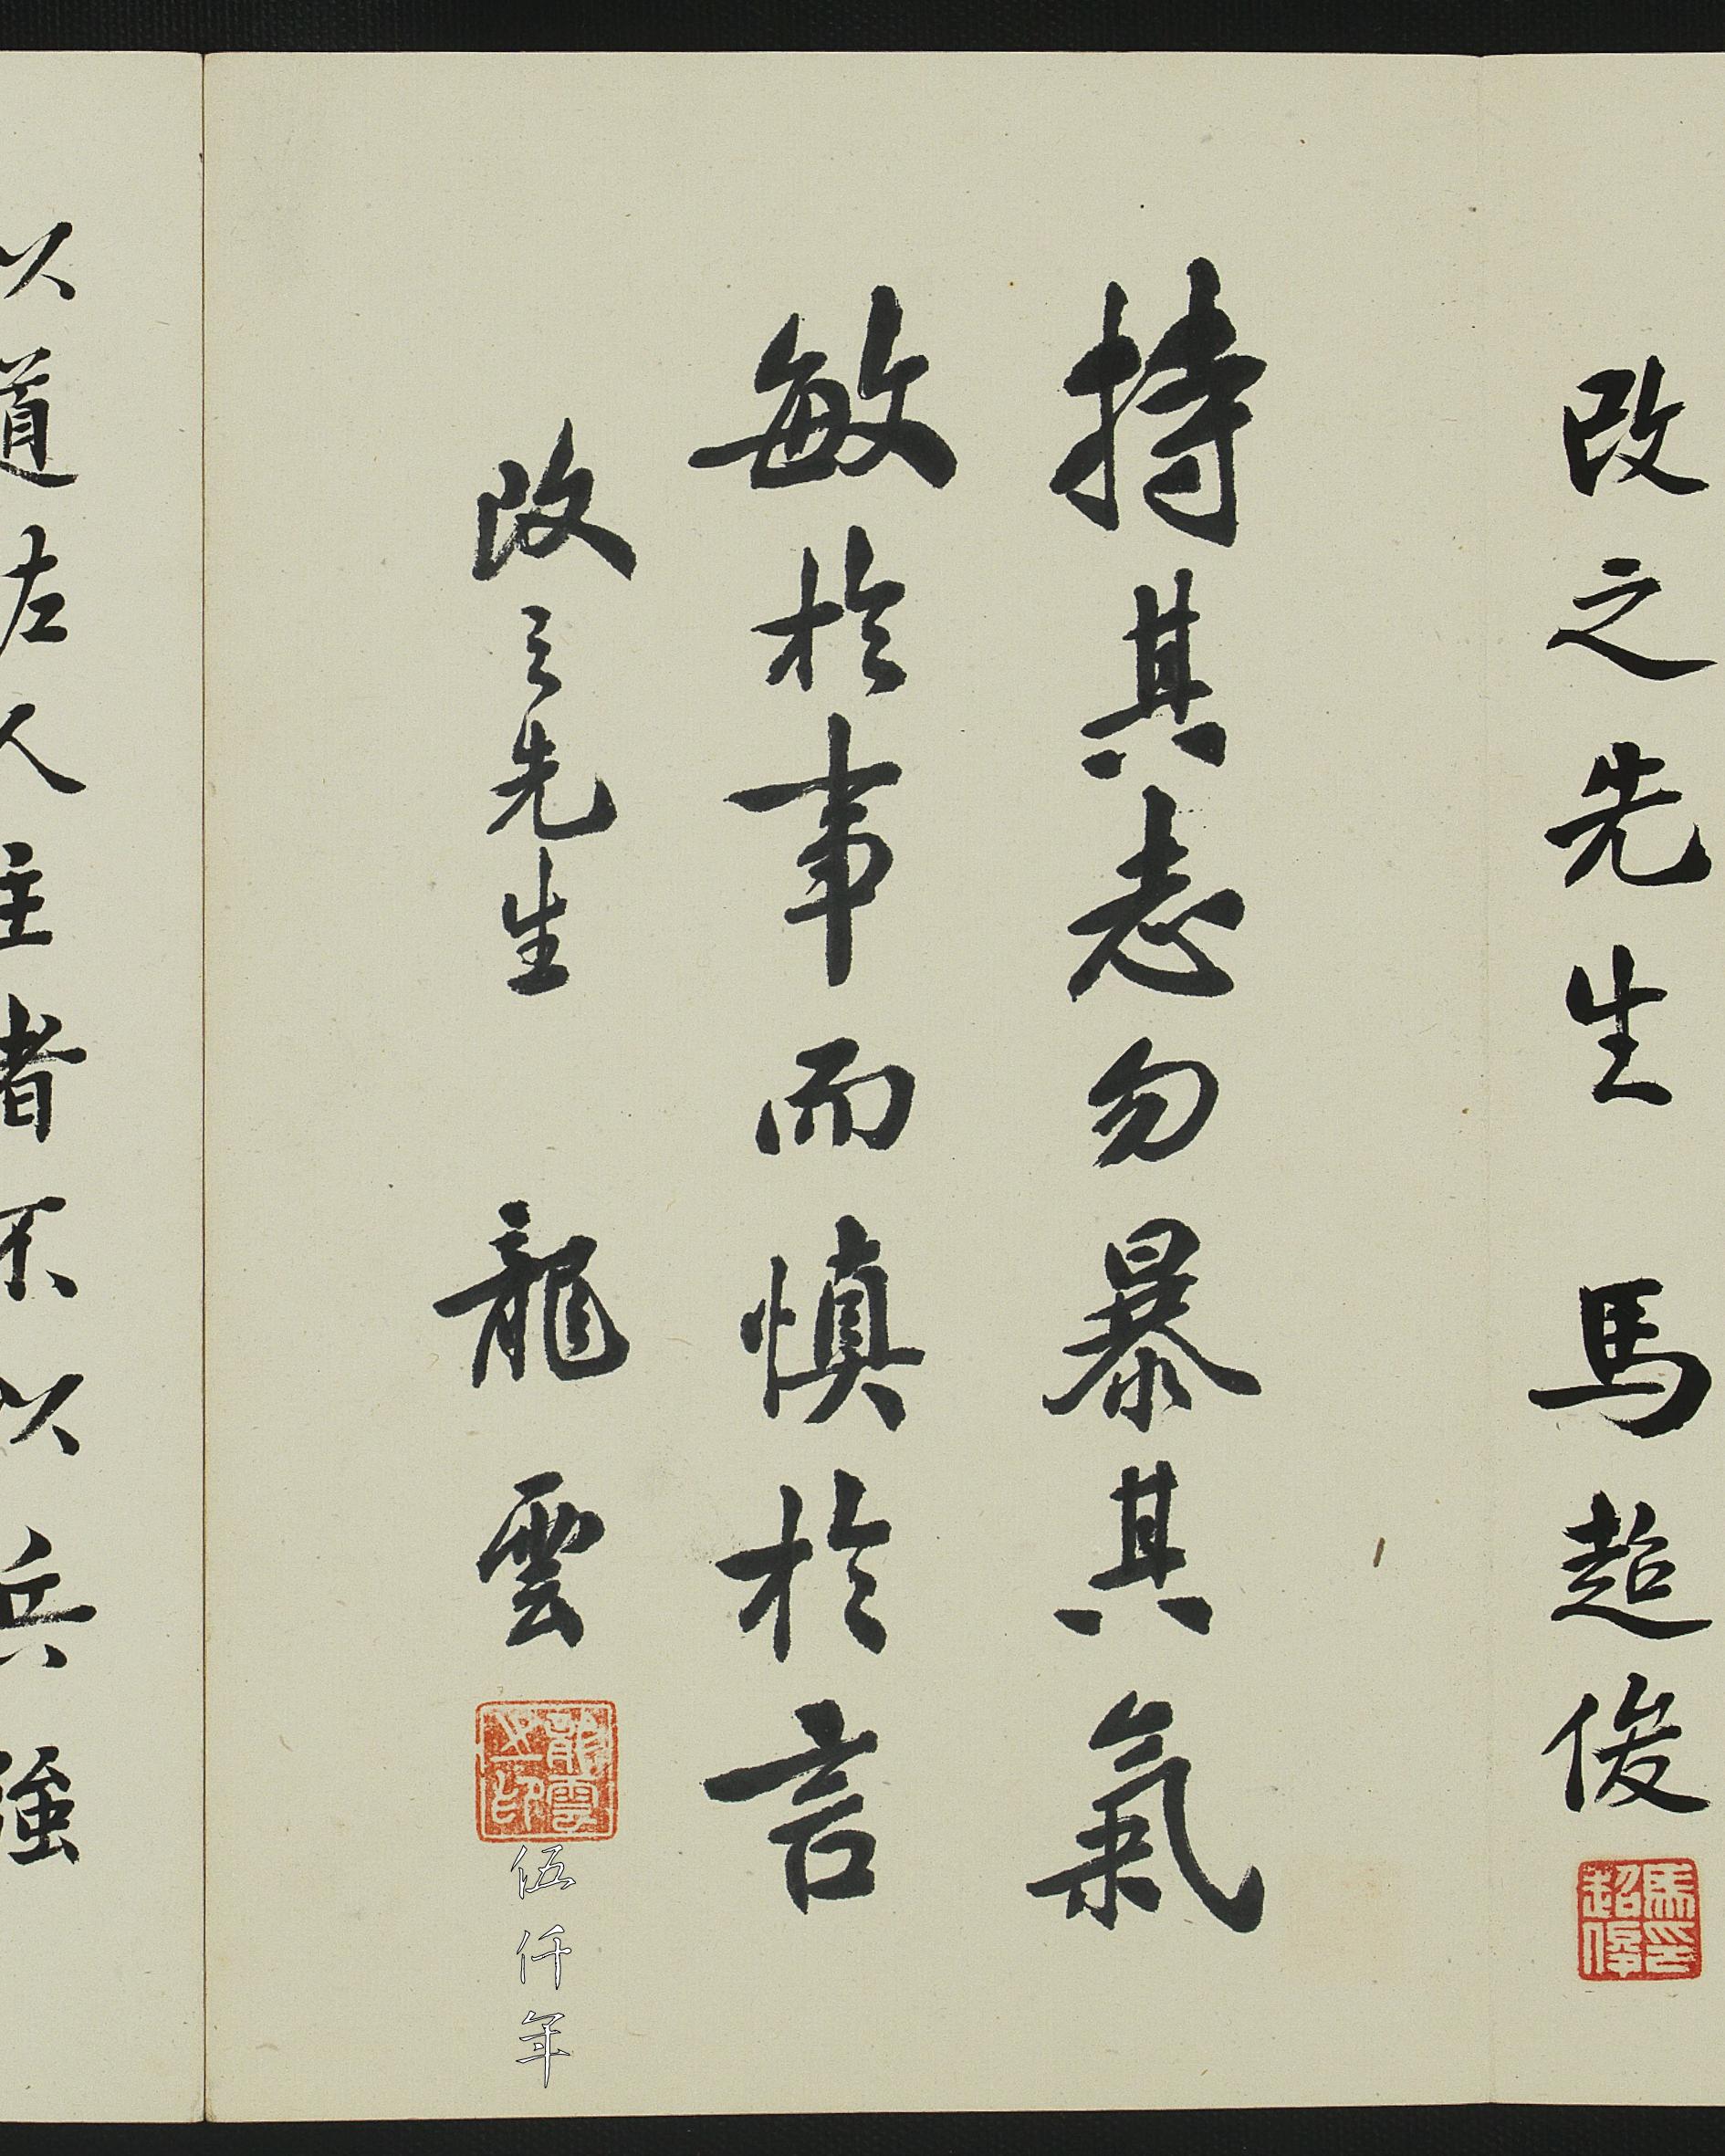 改之先生 馬超俊
馬超俊印
持其志勿暴其氣
敏於事而慎於言
改之先生 龍雲
龍雲之印
伍仟年
以道左人主者不以兵強